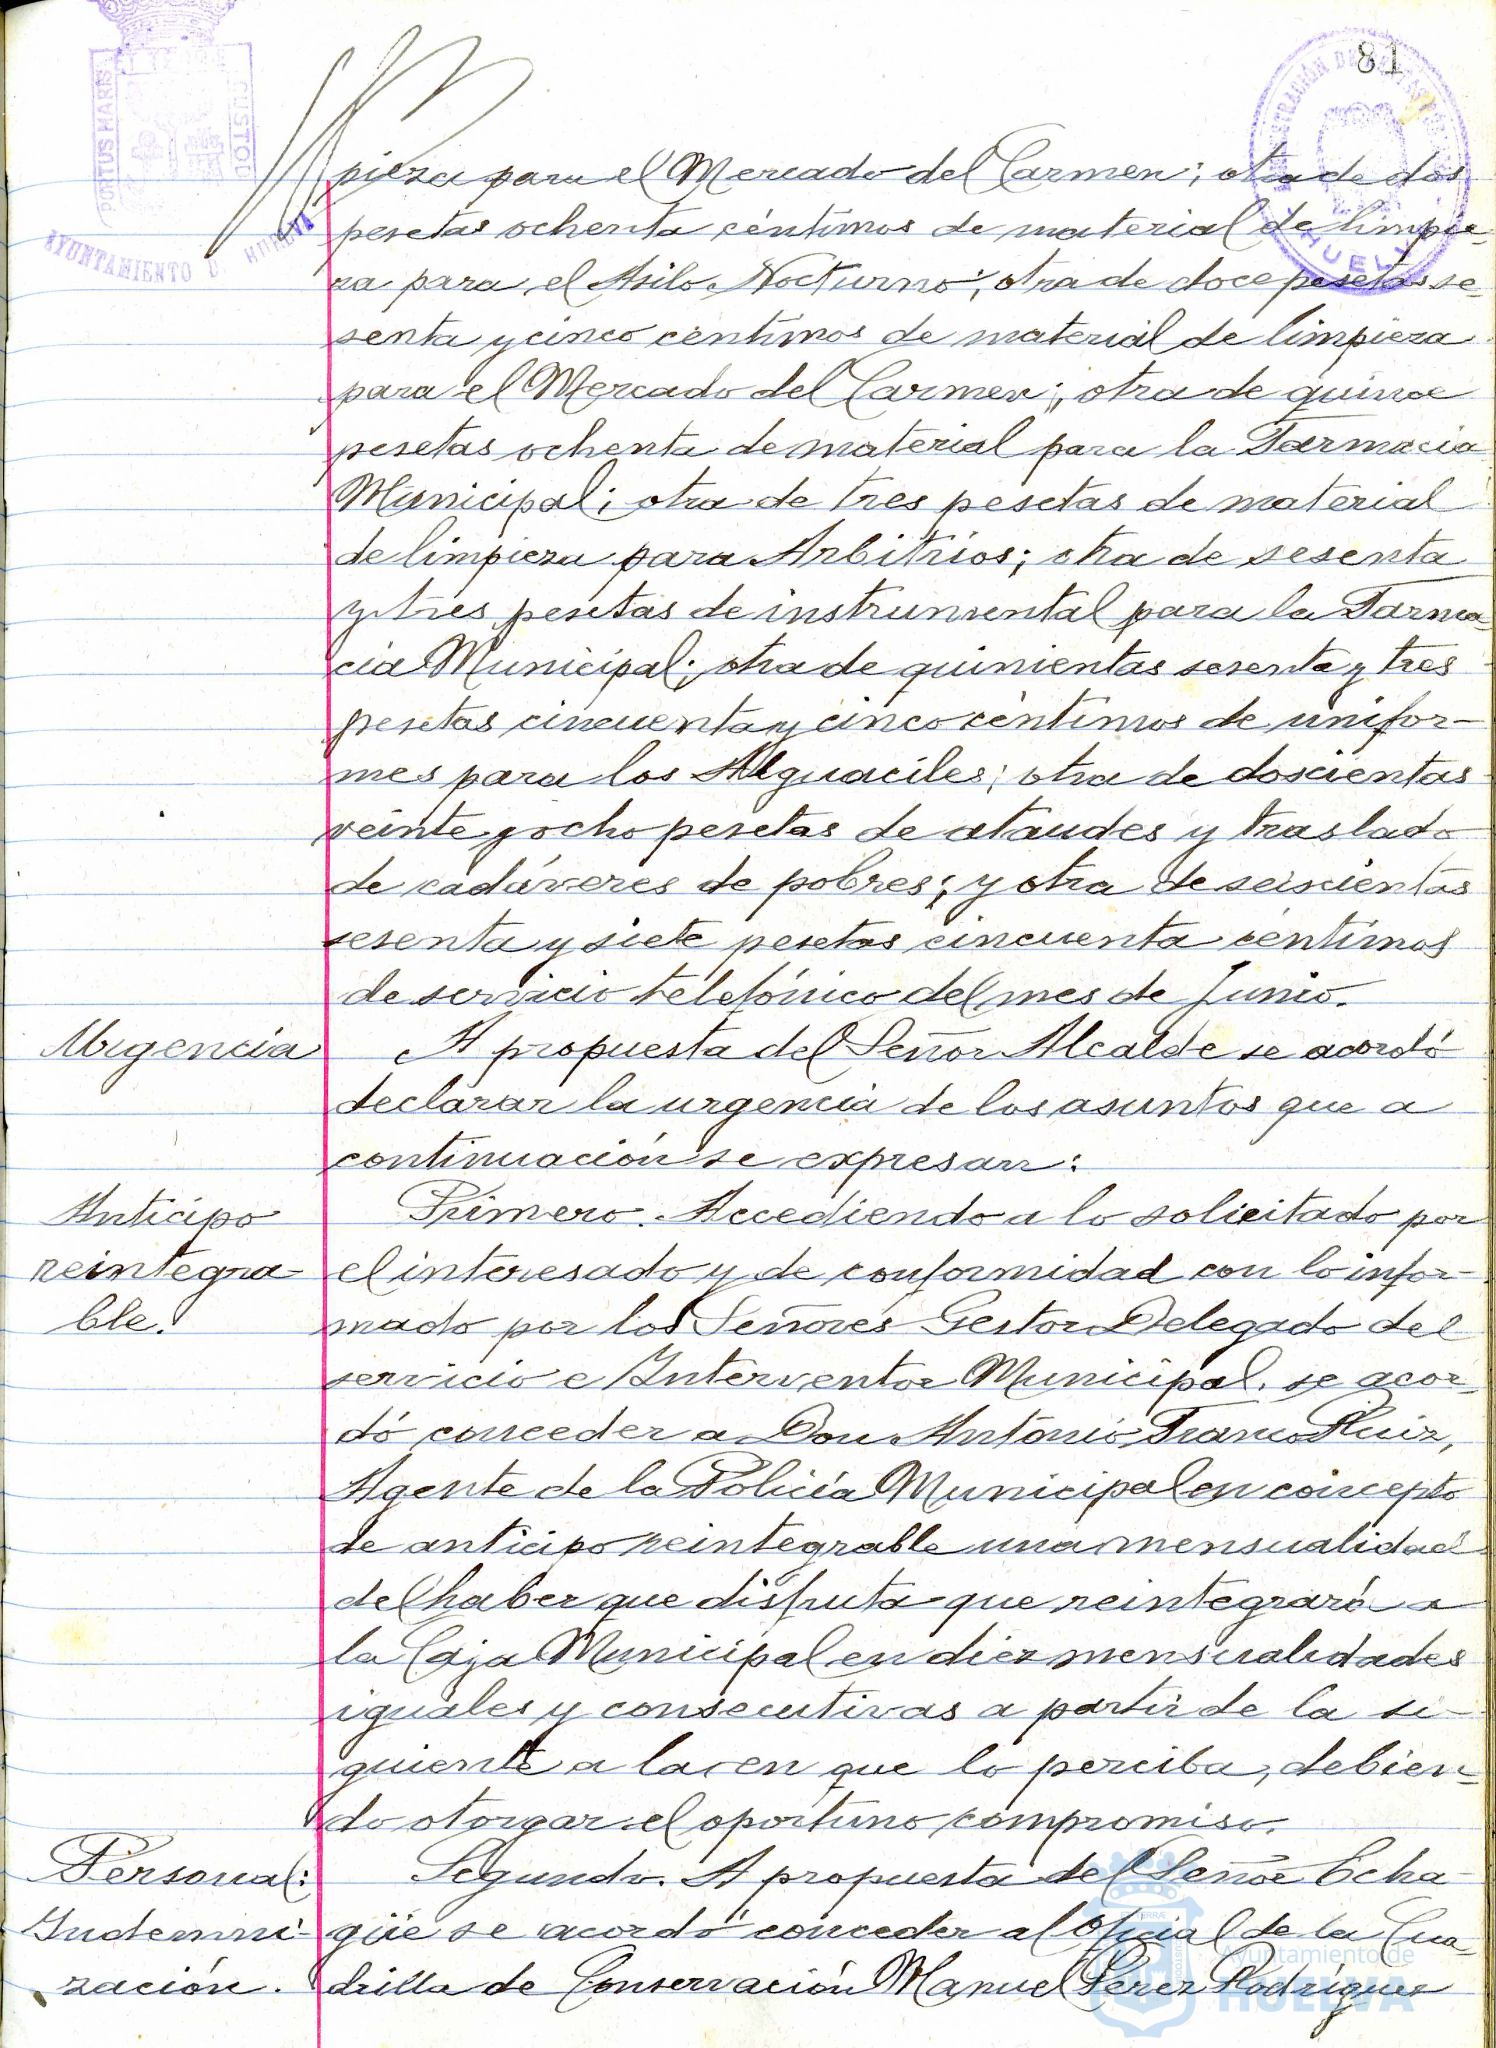 81
PORTUS MARIS
CUSTODI
AYUNTAMIENTO DE HUELVA
HUELVA
pieza para el Mercado del Carmen; otra de dos
pesetas ochenta céntimos de material de limpie-
za para el Asilo Nocturno; otra de doce pesetas se-
senta y cinco centimos de material de limpieza
para el Mercado del Carmen; otra de quince
pesetas ochenta de material para la Farmacia
Municipal; otra de tres pesetas de material
de limpieza para Arbitrios; otra de sesenta
y tres pesetas de instrumental para la Farma-
cia Municipal; otra de quinientas sesenta y tres
pesetas cincuenta y cinco céntimos de unifor-
mes para los Alguaciles; otra de doscientas
veinte y ocho pesetas de ataudes y traslado
de cadáveres de pobres; y otra de seiscientas
sesenta y siete pesetas cincuenta céntimos
de servicio telefónico del mes de Junio.
Urgencia
A propuesta del Señor Alcalde se acordó
declarar la urgencia de los asuntos que a
continuación se expresan:
Anticipo
reintegra-
ble.
Primero. Accediendo a lo solicitado por
el interesado y de conformidad con lo infor-
mado por los Señores Gestor Delegado del
servicio e Interventor Municipal, se acor-
dó conceder a Don Antonio Franco Ruiz,
Agente de la Policía Municipal en concepto
de anticipo reintegrable una mensualidad
del haber que disfruta que reintegrará a
la Caja Municipal en diez mensualidades
iguales y consecutivas a partir de la si-
guiente a la en que lo perciba, debien-
do otorgar el oportuno compromiso.
Personal:
Indemni-
zación.
Segundo. A propuesta del Señor Echa-
güe se acordó conceder al Oficial de la Cua-
drilla de Conservación Manuel Pérez Rodríguez
Ayuntamiento de
HUELVA